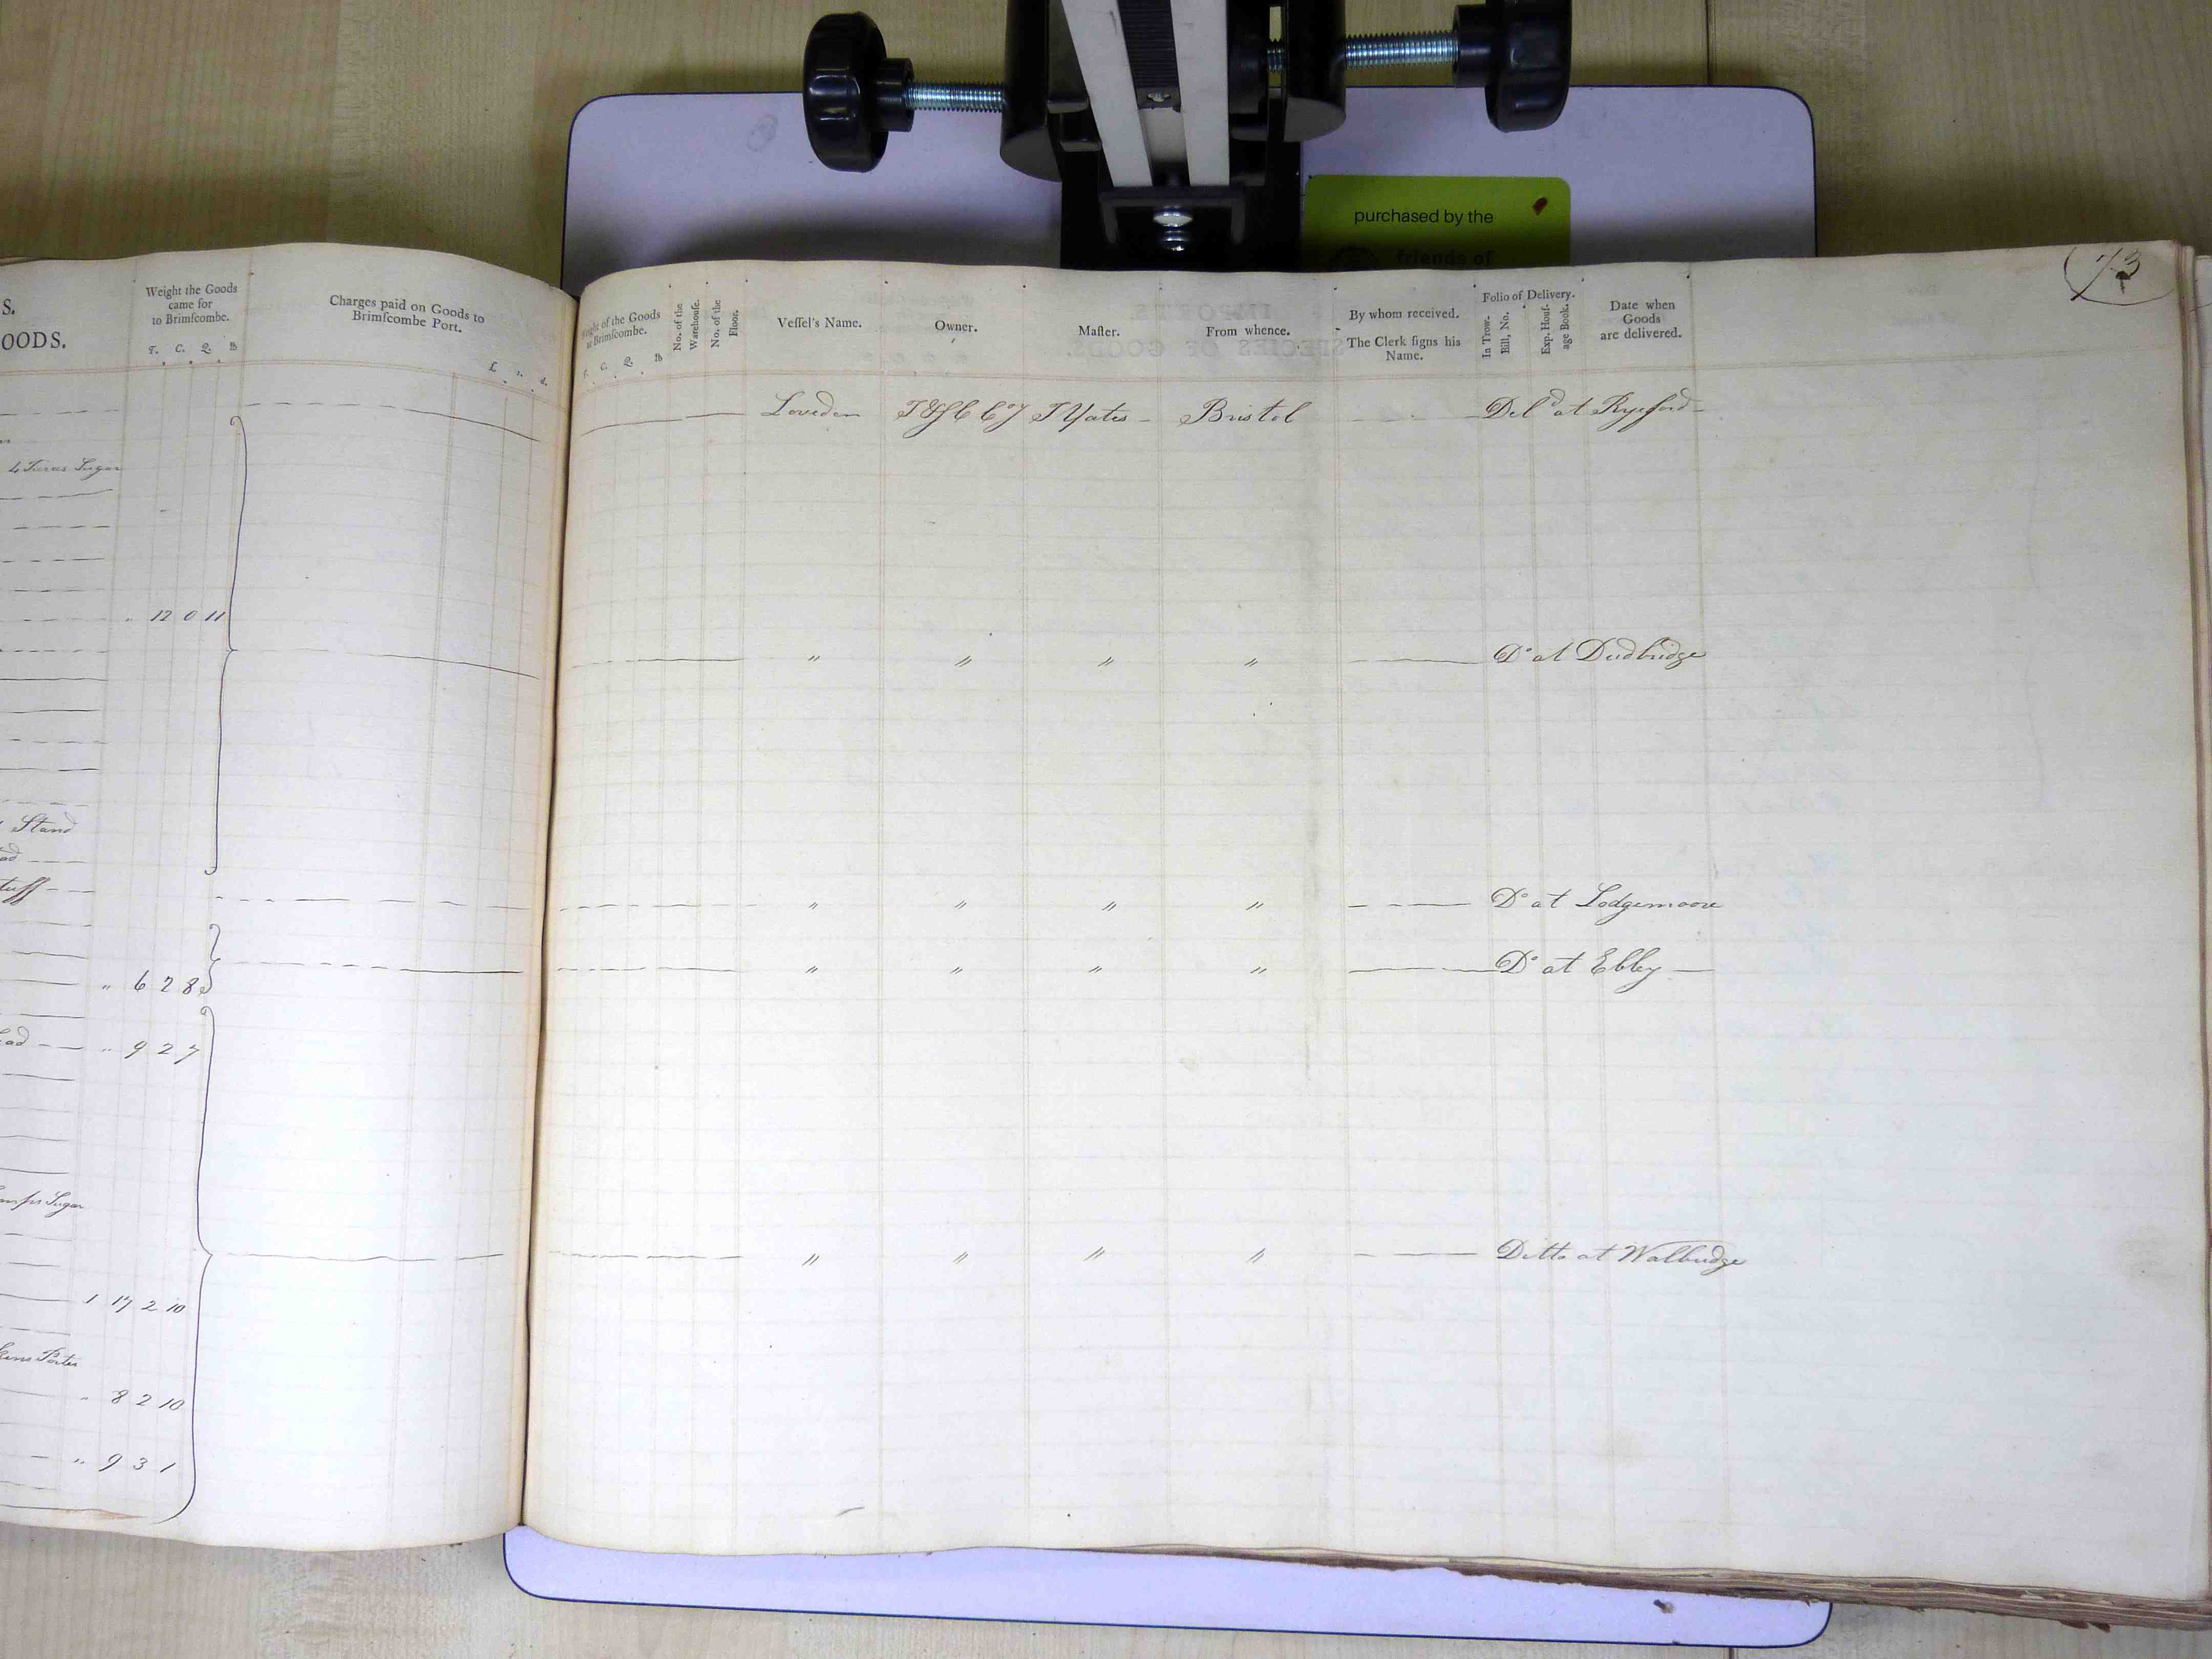 purchased by the
friends of
73
S.
OODS.
Weight the Goods
came for
to Brimſcombe.
T. C. Q. lb
Charges paid on Goods to
Brimſcombe Port.
£. s. d.
4 Tierces Sugar
12 0 11
Stand
ad
tuff
" 6 2 8
ad " 9 2 7
Sugar
1 17 2 10
Porter
" 8 2 10
" 9 3 1
Weight of the Goods
at Brimſcombe.
T. C. Q. lb
No. of the
Warehouſe.
No. of the
Floor.
Veſſel's Name.
Owner.
Maſter.
From whence.
By whom received.
The Clerk ſigns his
Name.
Folio of Delivery.
In Trow-
Bill, No.
Exp. Houſ-
age Book.
Date when
Goods
are delivered.
Loveden T&SC Coy J Yates Bristol Deld at Ryeford
" " " " Do at Dudbridge
" " " " Do at Lodgemoore
" " " " Do at Ebley
" " " " Ditto at Walbridge